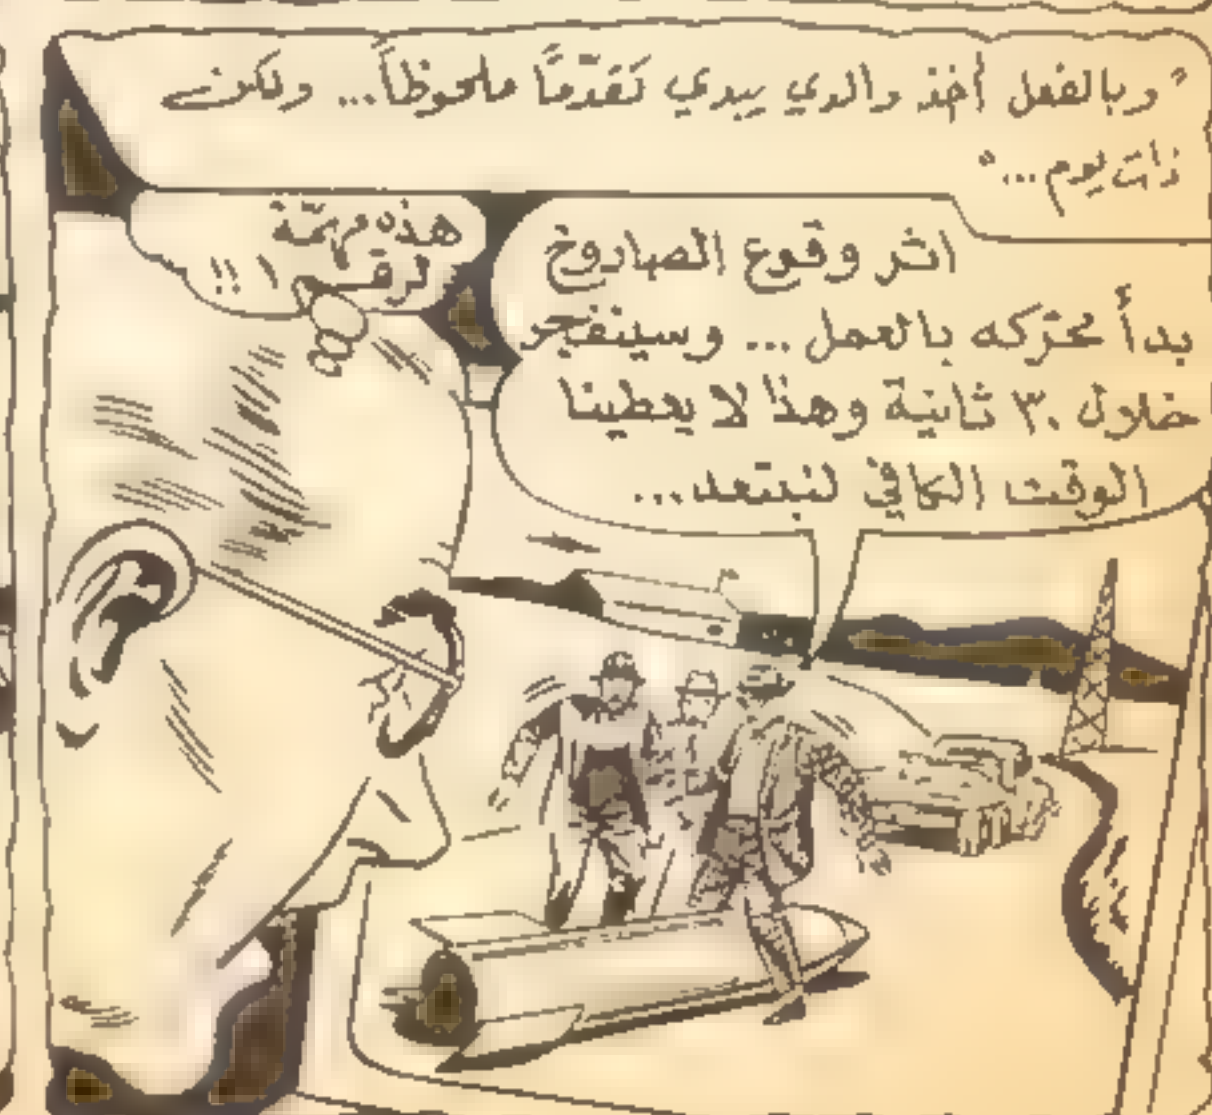 "وبالفعل أخذ والدي يبدي تَقدّمًا ملحوظاً... ولكن
ذات يوم..."
اثر وقوع الصاروخ
بدأ محرّكه بالعمل... وسينفجر
خلال ٣٠ ثانية وهذا لا يعطينا
الوقت الكافي لنبتعد...
هذه مهمّة
لرقم ١ !!